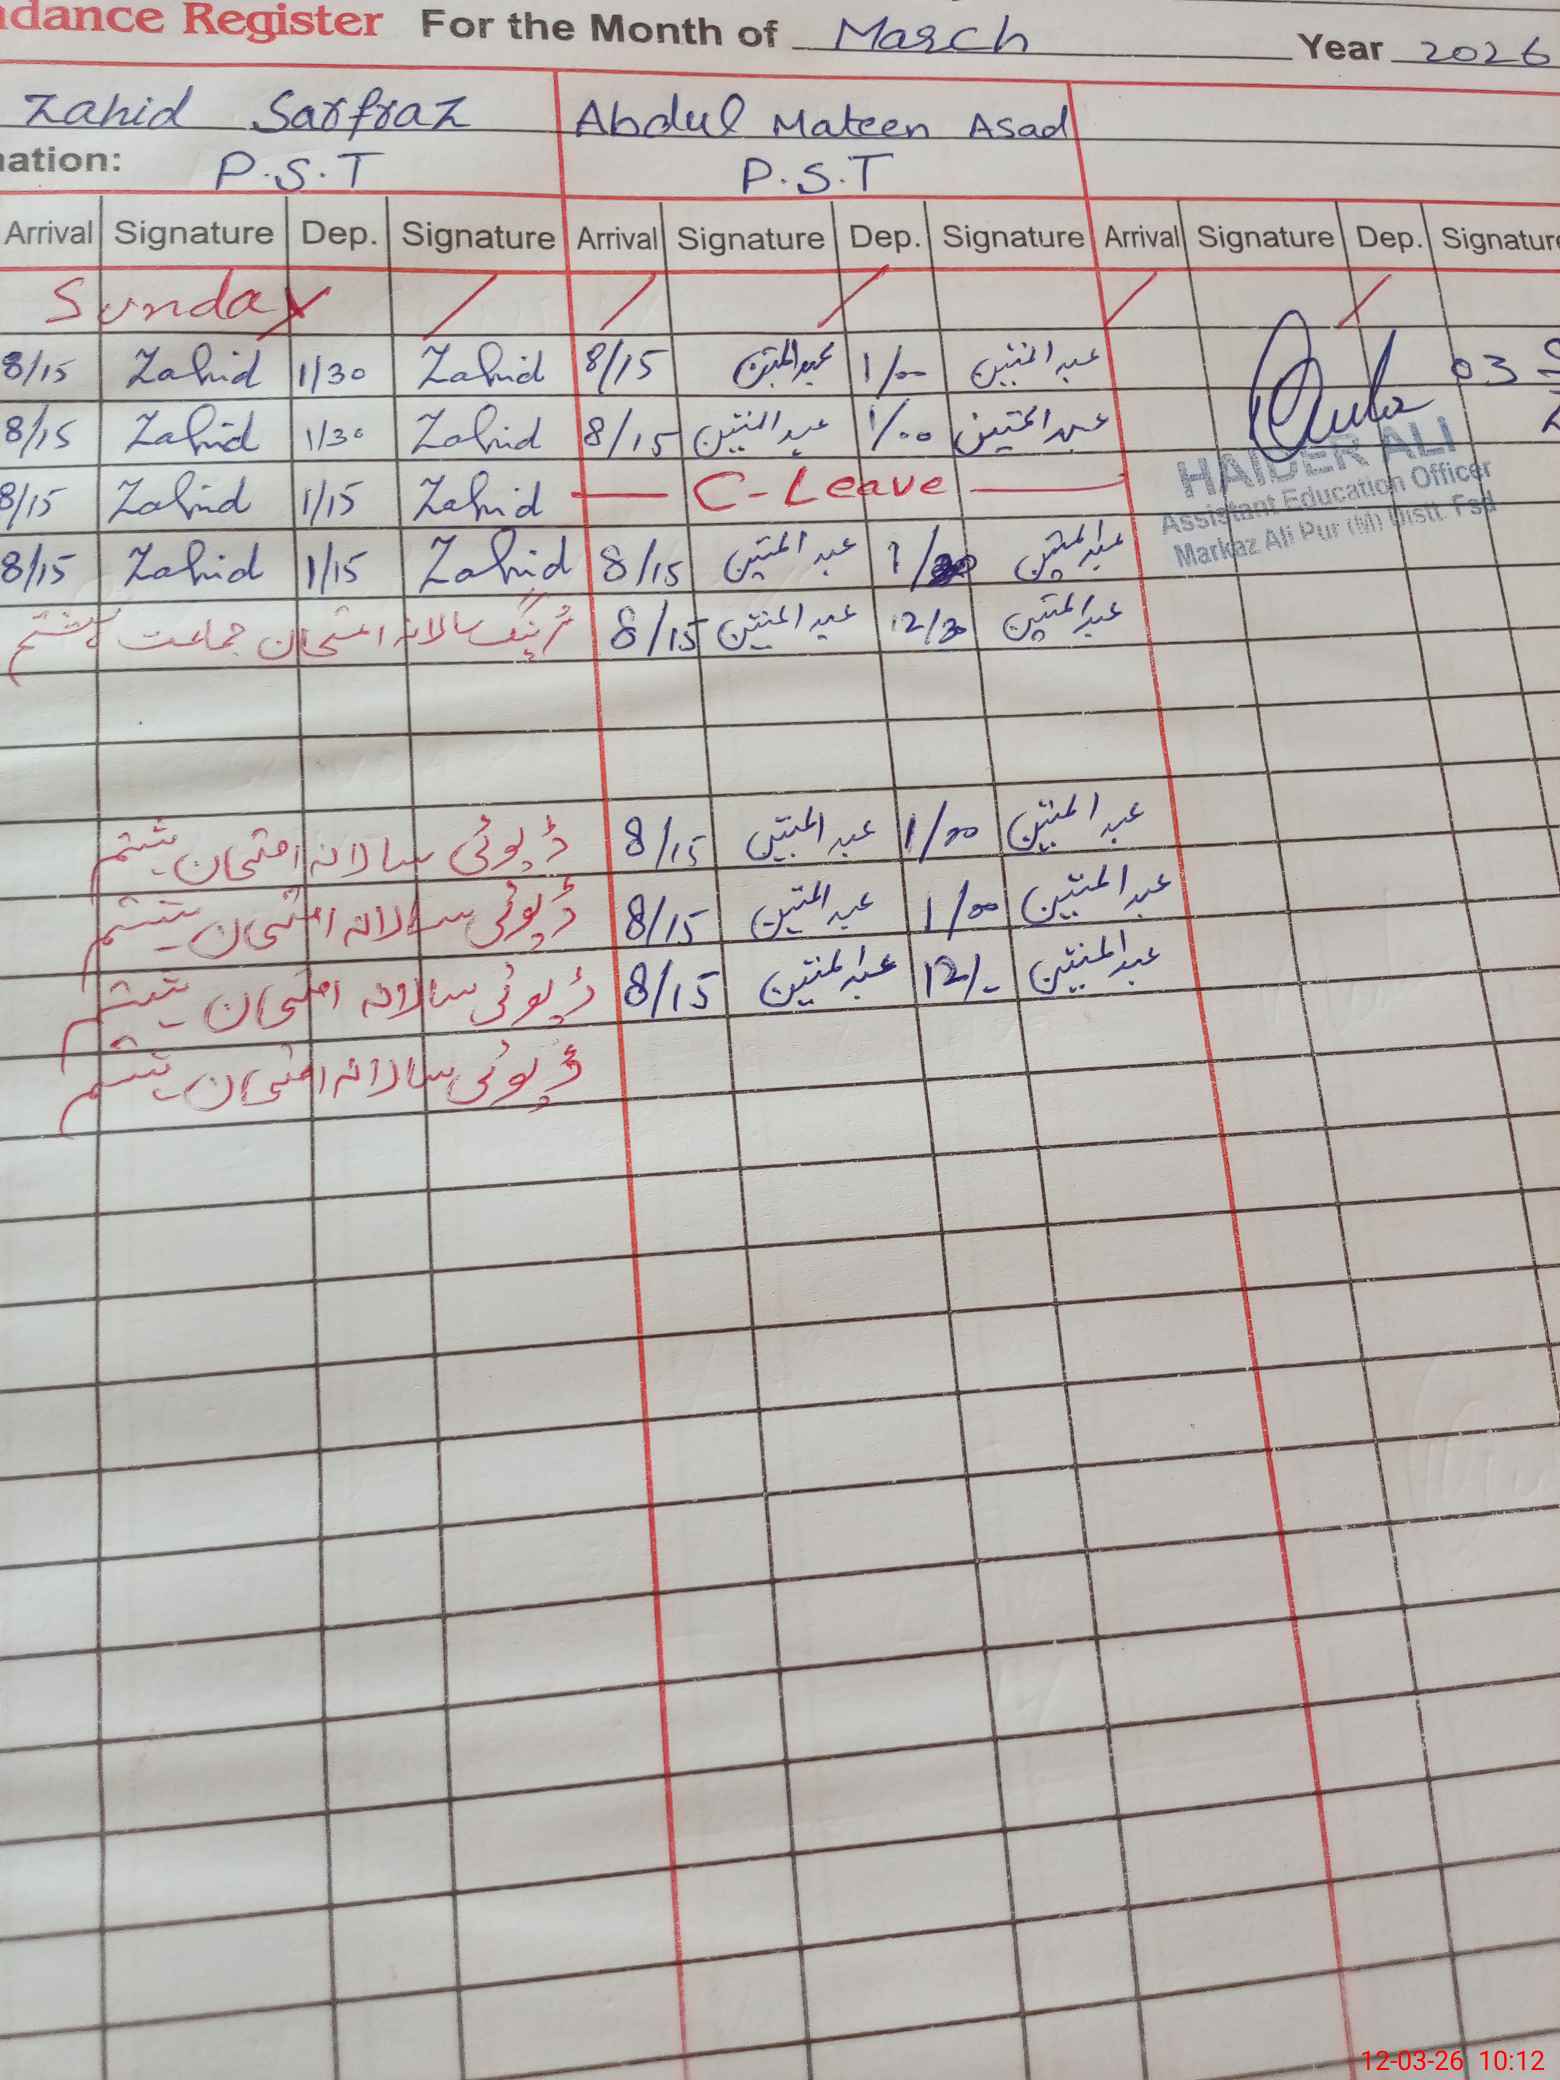 dance Register For the Month of March Year 2026
Zahid Sarfraz Abdul Mateen Asad
nation: P.S.T P.S.T
Arrival Signature Dep. Signature Arrival Signature Dep. Signature Arrival Signature Dep. Signature
Sunday
8/15 Zahid 1/30 Zahid 8/15 عبدالمتین 1/00 عبدالمتین 03
8/15 Zahid 1/30 Zahid 8/15 عبدالمتین 1/00 عبدالمتین
HAIDER ALI
Assistant Education Officer
Markaz Ali Pur (M) Distt. Fsd
8/15 Zahid 1/15 Zahid C-Leave
8/15 Zahid 1/15 Zahid 8/15 عبدالمتین 1/ عبدالمتین
سالانہ امتحان جماعت ہشتم 8/15 عبدالمتین 12/30 عبدالمتین
ڈیوٹی سالانہ امتحان ہشتم 8/15 عبدالمتین 1/00 عبدالمتین
ڈیوٹی سالانہ امتحان ہشتم 8/15 عبدالمتین 1/00 عبدالمتین
ڈیوٹی سالانہ امتحان ہشتم 8/15 عبدالمتین 12/- عبدالمتین
ڈیوٹی سالانہ امتحان ہشتم
12-03-26 10:12